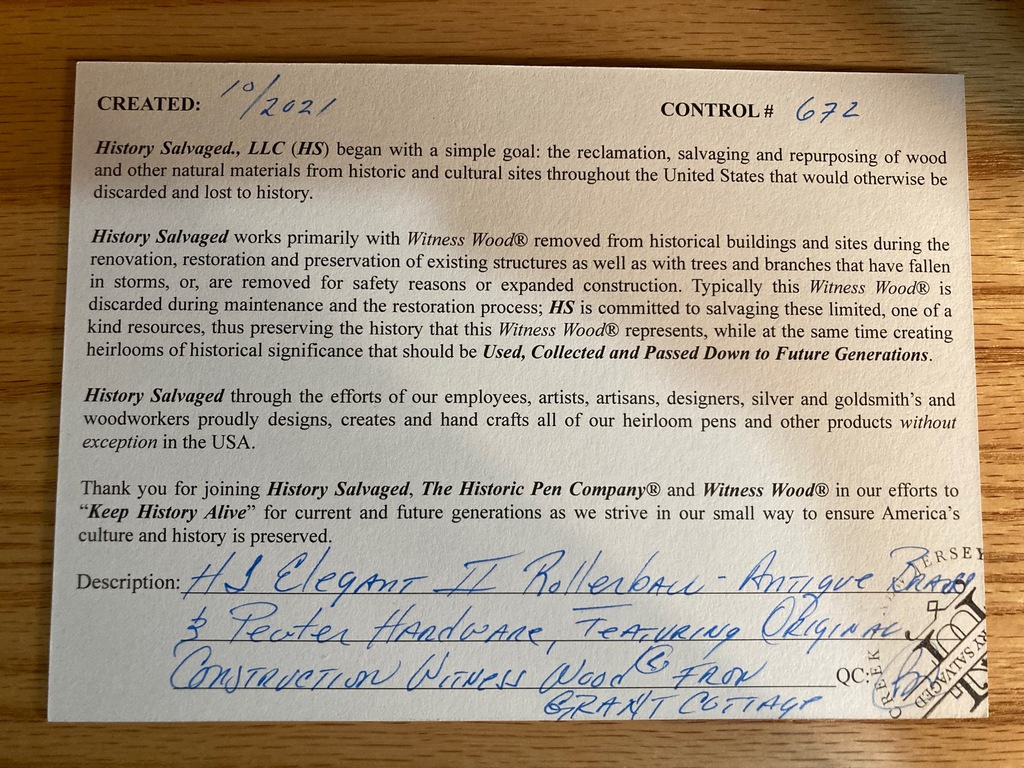 CREATED: 10/2021 CONTROL # 672
History Salvaged., LLC (HS) began with a simple goal: the reclamation, salvaging and repurposing of wood
and other natural materials from historic and cultural sites throughout the United States that would otherwise be
discarded and lost to history.
History Salvaged works primarily with Witness Wood® removed from historical buildings and sites during the
renovation, restoration and preservation of existing structures as well as with trees and branches that have fallen
in storms, or, are removed for safety reasons or expanded construction. Typically this Witness Wood® is
discarded during maintenance and the restoration process; HS is committed to salvaging these limited, one of a
kind resources, thus preserving the history that this Witness Wood® represents, while at the same time creating
heirlooms of historical significance that should be Used, Collected and Passed Down to Future Generations.
History Salvaged through the efforts of our employees, artists, artisans, designers, silver and goldsmith's and
woodworkers proudly designs, creates and hand crafts all of our heirloom pens and other products without
exception in the USA.
Thank you for joining History Salvaged, The Historic Pen Company® and Witness Wood® in our efforts to
“Keep History Alive” for current and future generations as we strive in our small way to ensure America's
culture and history is preserved.
Description: HS Elegant II Rollerball - Antique Brass
& Pewter Hardware, Featuring Original
Construction Witness Wood® From
QC:
Grant Cottage
CREEK JERSEY
RY SALVAGED